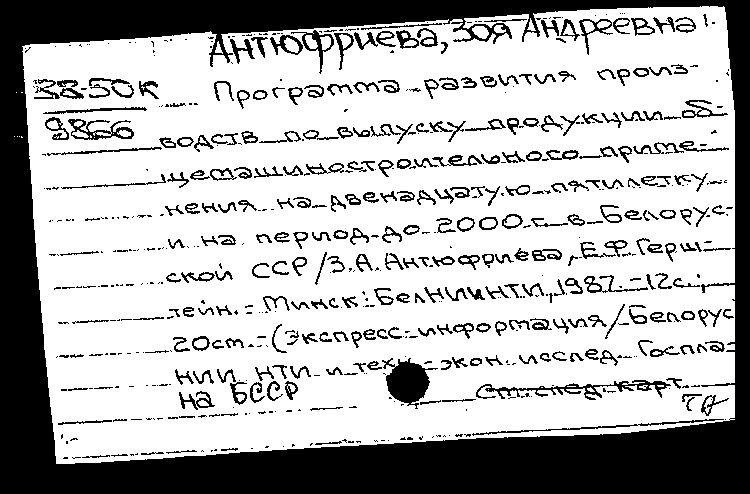 Антюфриева, Зоя Андреевна
38-50К Программа развития произ-
9866 водств по выпуску продукции об-
щемашиностроительного приме-
нения на двенадцатую пятилетку
и на период до 2000 г. в Белорус-
ской ССР / З.А. Антюфриева, Е.Ф. Герш-
тейн. - Минск: БелНИИНТИ, 1987. - 12 с.;
20 см. - (Экспресс-информация / Белорус
НИИ НТИ и техн.-экон. исслед. Госпла-
на БССР
См. след. карт